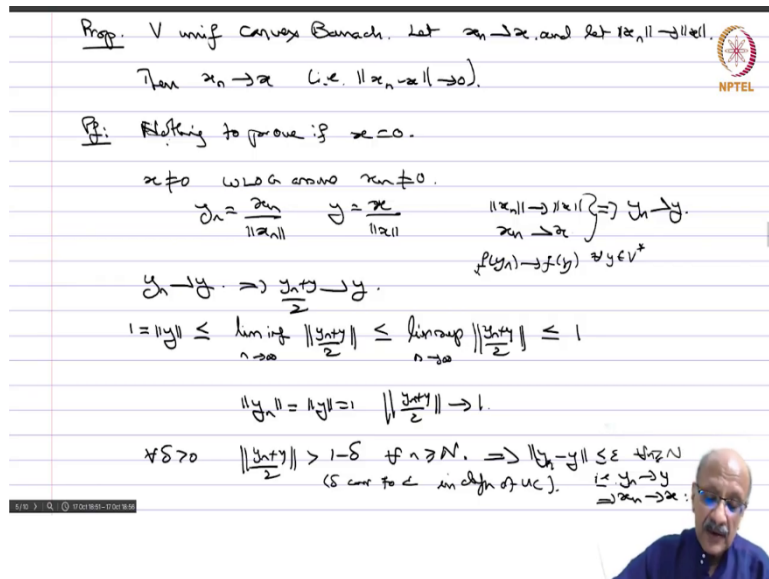 Prop. V unif convex Banach. Let xₙ ⇀ x. and let ‖xₙ‖ → ‖x‖.
Then xₙ → x (i.e. ‖xₙ - x‖ → 0).
NPTEL
Pf: Nothing to prove if x = 0.
x ≠ 0 WLOG assume xₙ ≠ 0.
yₙ = xₙ/‖xₙ‖ y = x/‖x‖ ‖xₙ‖ → ‖x‖ xₙ ⇀ x } ⇒ yₙ ⇀ y.
f(yₙ) → f(y) ∀ y ∈ V*
yₙ ⇀ y. ⇒ (yₙ+y)/2 ⇀ y.
1 = ‖y‖ ≤ lim inf n→∞ ‖(yₙ+y)/2‖ ≤ lim sup n→∞ ‖(yₙ+y)/2‖ ≤ 1
‖yₙ‖ = ‖y‖ = 1 ‖(yₙ+y)/2‖ → 1.
∀ δ > 0 ‖(yₙ+y)/2‖ > 1-δ ∀ n ≥ N. ⇒ ‖yₙ - y‖ ≤ ε ∀ n ≥ N
(δ corr to ε in defn of UC). i.e. yₙ → y
⇒ xₙ → x.
5/10 17 Oct 18:51 - 17 Oct 18:56